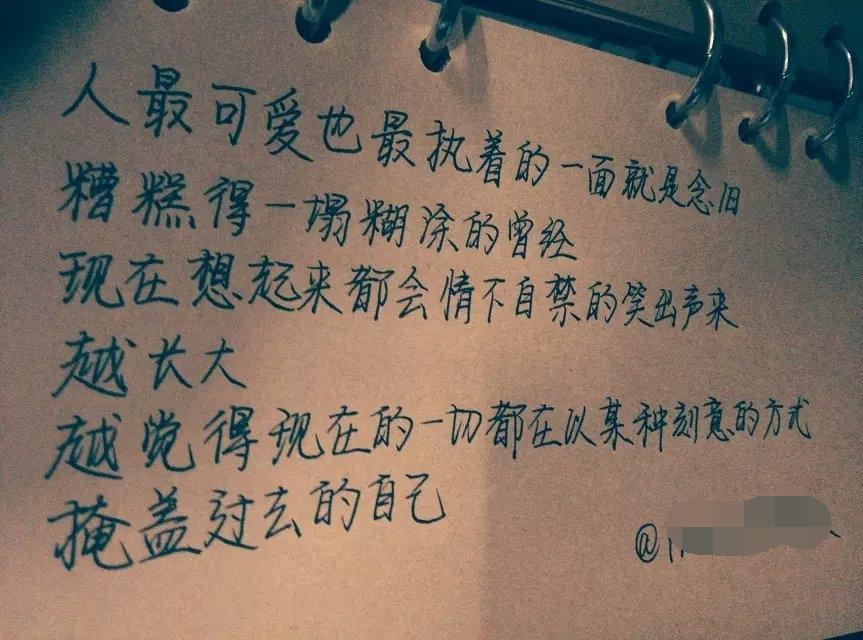 人最可爱也最执着的一面就是念旧
糟糕得一塌糊涂的曾经
现在想起来都会情不自禁的笑出声来
越长大
越觉得现在的一切都在以某种刻意的方式
掩盖过去的自己
@